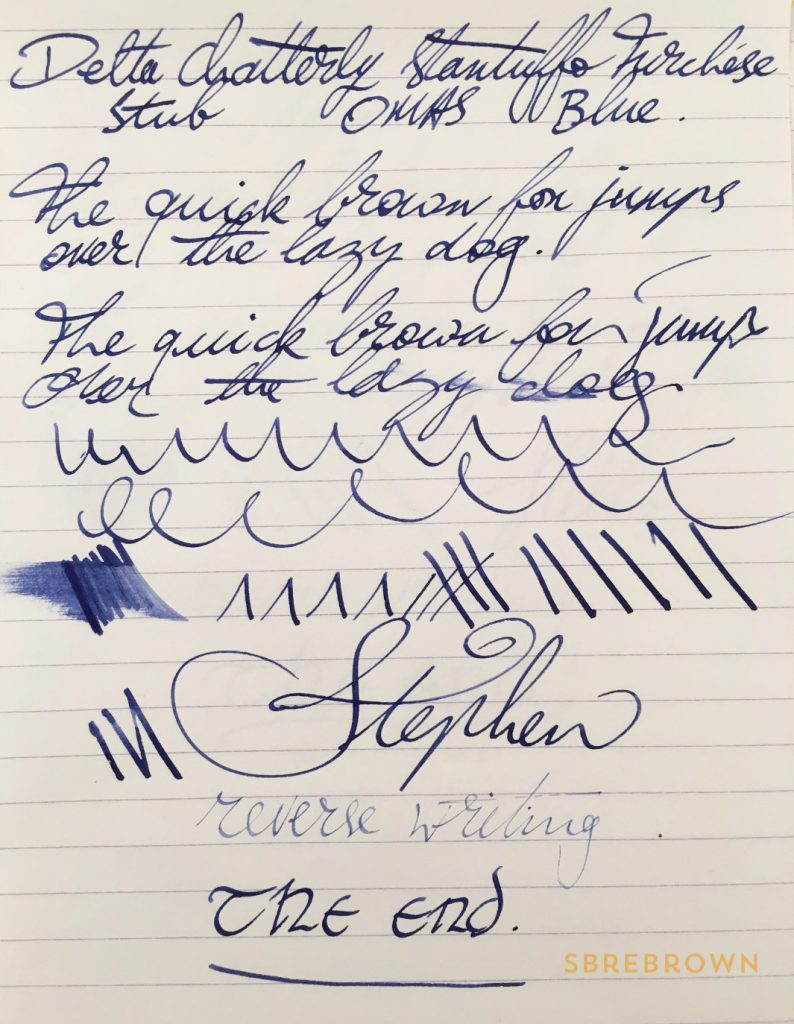 Delta Chatterly Stantuffo Turchese
Stub OMAS Blue.
The quick brown fox jumps
over the lazy dog.
The quick brown fox jumps
over the lazy dog
Stephen
reverse writing.
The End.
SBREBROWN